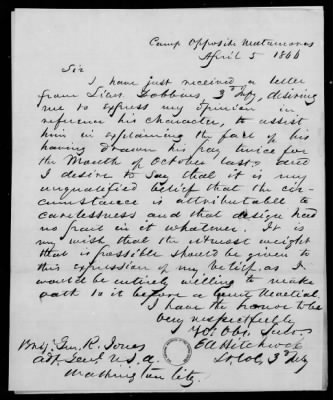 Camp Opposite Matamoros
April 5 1846
Sir
I have just received a letter
from Lieut. Gobbens, 3d Infy, desiring
me to express my opinion in
reference his character, to assist
him in explaining the fact of his
having drawn his pay twice for
the Month of October last, and
I desire to say that it is my
unqualified belief that the cir-
cumstance is attributable to
carelessness and that design had
no part in it whatever. It is
my wish that the utmost weight
that is possible should be given to
this expression of my belief, as I
would be entirely willing to make
oath to it before a Court Martial.
I have the honor to be
very respectfully
Yr. Obt. Servt.
E A Hitchcock
Lt. Col. 3d Infy
Brig. Gen. R. Jones
Adt. Genl. U.S.A.
Washington City